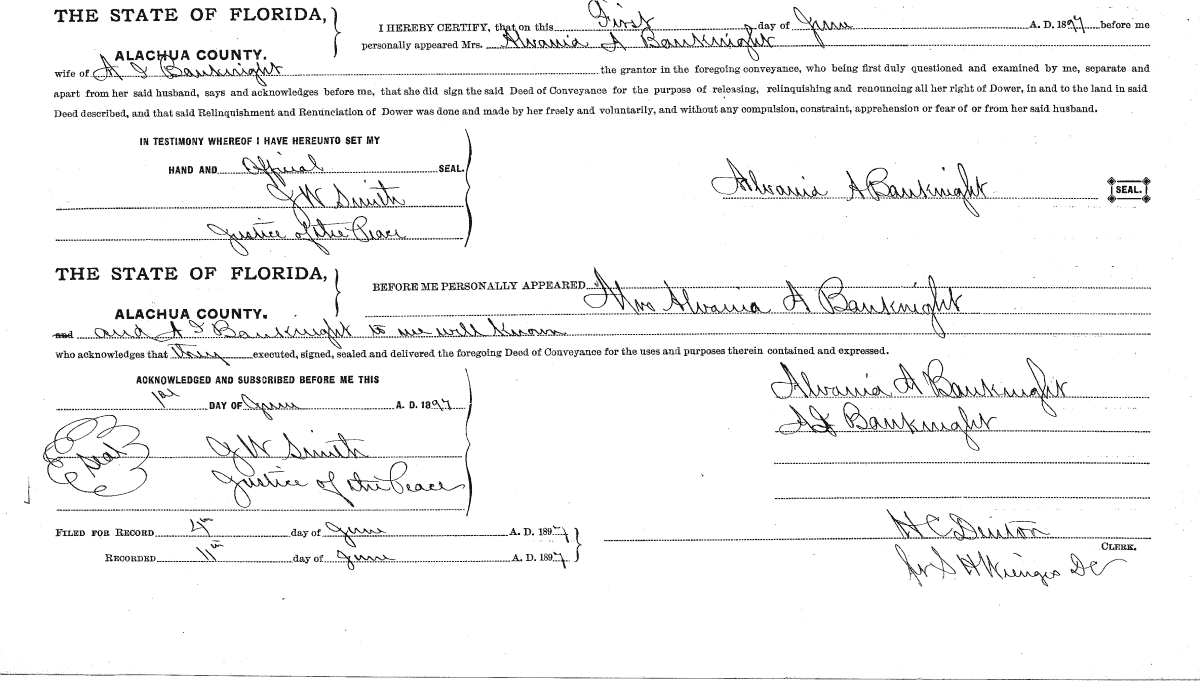 THE STATE OF FLORIDA,
ALACHUA COUNTY.
I HEREBY CERTIFY, that on this First day of June A. D. 1897 before me
personally appeared Mrs. Alvania A Bauknight
wife of A I Bauknight the grantor in the foregoing conveyance, who being first duly questioned and examined by me, separate and
apart from her said husband, says and acknowledges before me, that she did sign the said Deed of Conveyance for the purpose of releasing, relinquishing and renouncing all her right of Dower, in and to the land in said
Deed described, and that said Relinquishment and Renunciation of Dower was done and made by her freely and voluntarily, and without any compulsion, constraint, apprehension or fear of or from her said husband.
IN TESTIMONY WHEREOF I HAVE HEREUNTO SET MY
HAND AND Official SEAL.
J W Smith
Justice of the Peace
Alvania A Bauknight SEAL.
THE STATE OF FLORIDA,
ALACHUA COUNTY.
BEFORE ME PERSONALLY APPEARED Mrs Alvania A Bauknight
and and A I Bauknight to me well known
who acknowledges that they executed, signed, sealed and delivered the foregoing Deed of Conveyance for the uses and purposes therein contained and expressed.
ACKNOWLEDGED AND SUBSCRIBED BEFORE ME THIS
1st DAY OF June A. D. 1897
Seal
J W Smith
Justice of the Peace
Alvania A Bauknight
A I Bauknight
FILED FOR RECORD 4th day of June A. D. 1897
RECORDED 11th day of June A. D. 1897
H C Denton
CLERK.
S H Wienges DC